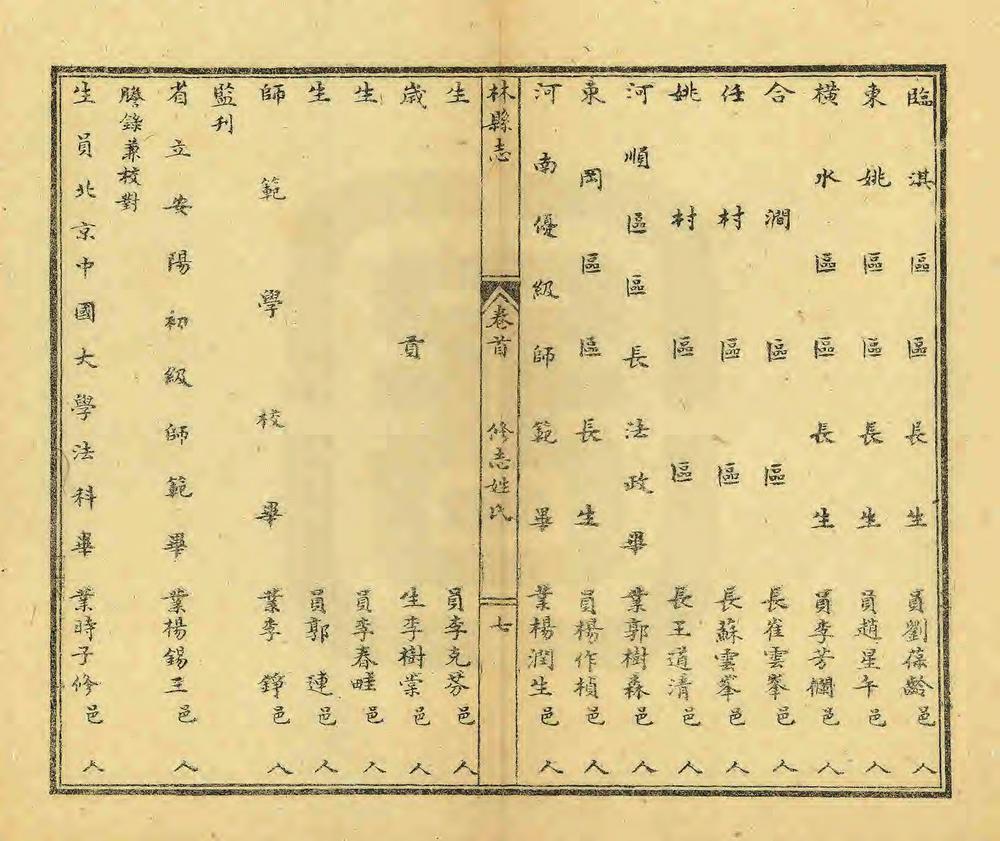 臨淇區區長生員劉葆齡邑人
東姚區區長生員趙星午邑人
橫水區區長生員李芳欄邑人
合澗區區長崔雲峯邑人
任村區區長蘇雲峯邑人
姚村區區長王道清邑人
河順區區長法政畢業郭樹森邑人
東岡區區長生員楊作楨邑人
河南優級師範畢業楊潤生邑人
林縣志 卷首 修志姓氏 七
生員李克芬邑人
歲貢生李樹棠邑人
生員李春畦邑人
生員郭連邑人
師範學校畢業李錚邑人
監刊
省立安陽初級師範畢業楊錫王邑人
謄錄兼校對
生員北京中國大學法科畢業時子修邑人